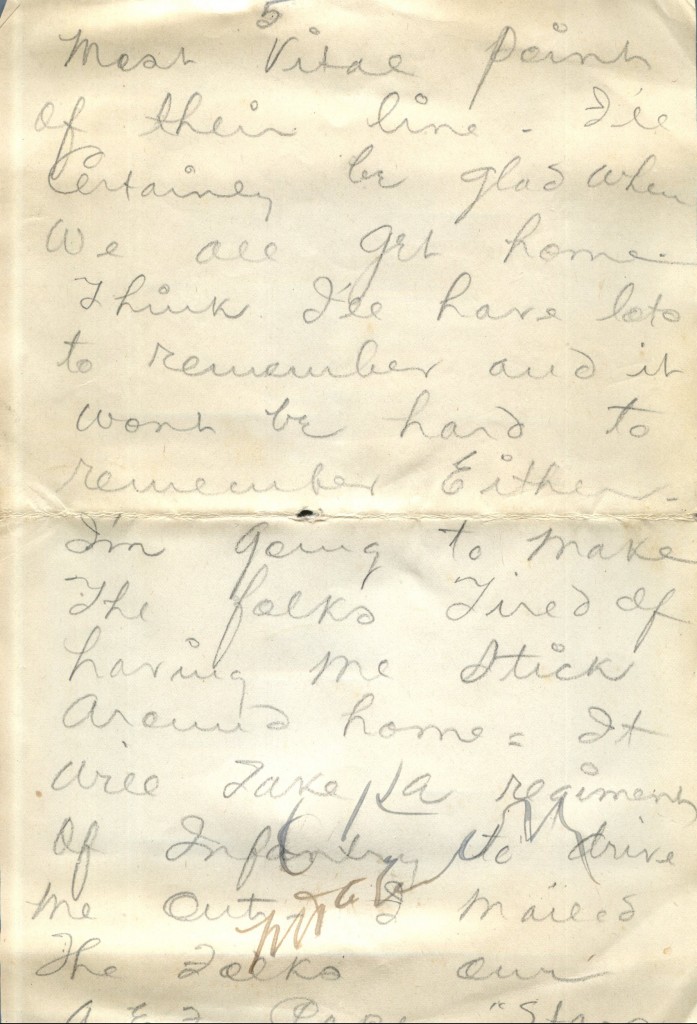 5
Most Vital point
of their line - I'll
Certainly be glad when
We all get home -
Think I'll have lots
to remember and it
wont be hard to
remember Either -
I'm going to make
The folks Tired of
having me Stick
Around home = It
Will Take a regiment
Of Infantry to drive
Me Out I Mailed
The Folks our
A.E.F. Paper "Stars